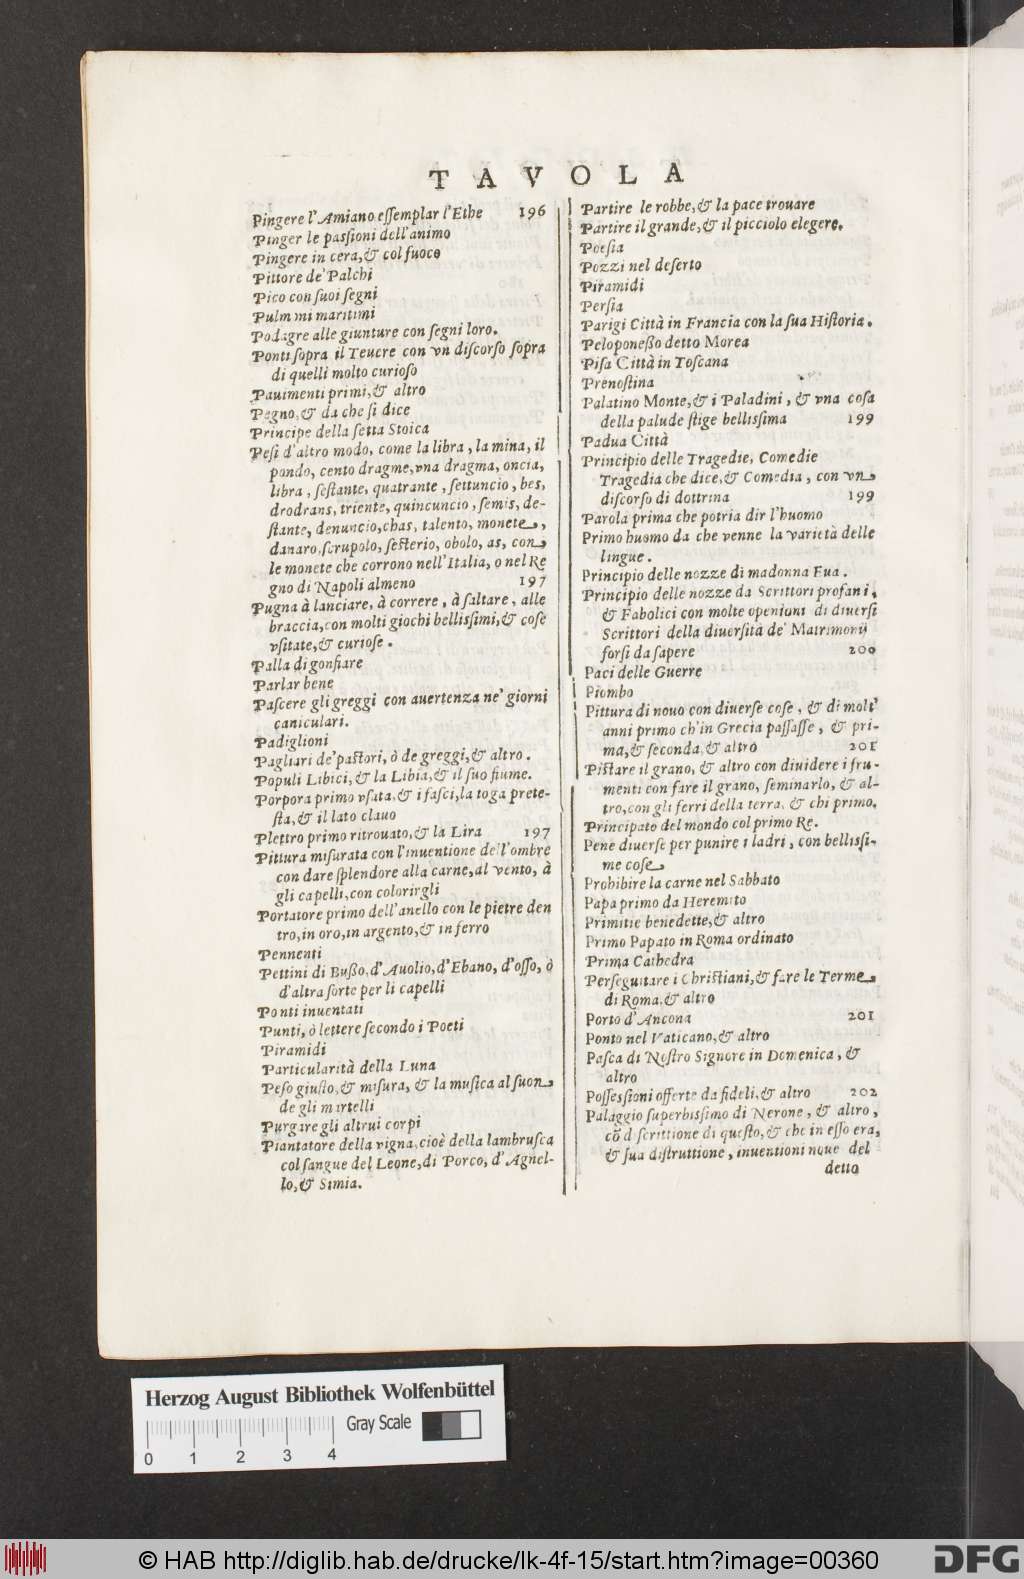 TAVOLA
Pingere l'Amiano essemplar l'Ethe 196
Pinger le passioni dell'animo
Pingere in cera, & col fuoco
Pittore de' Palchi
Pico con suoi segni
Pulm mi maritimi
Podagre alle giunture con segni loro.
Ponti sopra il Teuere con vn discorso sopra
di quelli molto curioso
Pauimenti primi, & altro
Pegno, & da che si dice
Principe della setta Stoica
Pesi d'altro modo, come la libra, la mina, il
pondo, cento dragme, vna dragma, oncia,
libra, sestante, quatrante, settuncio, bes,
drodrans, triente, quincuncio, semis, de-
stante, denuncio, chas, talento, monete,
danaro, scrupolo, sesterio, obolo, as, con
le monete che corrono nell'Italia, o nel Re
gno di Napoli almeno 197
Pugna à lanciare, à correre, à saltare, alle
braccia, con molti giochi bellissimi, & cose
vsitate, & curiose.
Palla di gonfiare
Parlar bene
Pascere gli greggi con auertenza ne' giorni
caniculari.
Padiglioni
Pagliari de' pastori, ò de greggi, & altro.
Populi Libici, & la Libia, & il suo fiume.
Porpora primo vsata, & i fasci, la toga prete-
sta, & il lato clauo
Plettro primo ritrouato, & la Lira 197
Pittura misurata con l'inuentione dell'ombre
con dare splendore alla carne, al vento, à
gli capelli, con colorirgli
Portatore primo dell'anello con le pietre den
tro, in oro, in argento, & in ferro
Pennenti
Pettini di Busso, d'Auolio, d'Ebano, d'osso, ò
d'altra sorte per li capelli
Ponti inuentati
Punti, ò lettere secondo i Poeti
Piramidi
Particularità della Luna
Peso giusto, & misura, & la musica al suon
de gli martelli
Purgare gli altrui corpi
Piantatore della vigna, cioè della lambrusca
col sangue del Leone, di Porco, d'Agnel-
lo, & Simia.
Partire le robbe, & la pace trouare
Partire il grande, & il picciolo elegere.
Poesia
Pozzi nel deserto
Piramidi
Persia
Parigi Città in Francia con la sua Historia.
Peloponesso detto Morea
Pisa Città in Toscana
Prenostina
Palatino Monte, & i Paladini, & vna cosa
della palude stige bellissima 199
Padua Città
Principio delle Tragedie, Comedie
Tragedia che dice, & Comedia, con vn
discorso di dottrina 199
Parola prima che potria dir l'huomo
Primo huomo da che venne la varietà delle
lingue.
Principio delle nozze di madonna Eua.
Principio delle nozze da Scrittori profani,
& Fabolici con molte openioni di diuersi
Scrittori della diuersità de' Matrimonij
forsi da sapere 200
Paci delle Guerre
Piombo
Pittura di nouo con diuerse cose, & di molt'
anni primo ch'in Grecia passasse, & pri-
ma, & seconda, & altro 201
Pistare il grano, & altro con diuidere i fru-
menti con fare il grano, seminarlo, & al-
tro, con gli ferri della terra, & chi primo.
Principato del mondo col primo Re.
Pene diuerse per punire i ladri, con bellissi-
me cose
Prohibire la carne nel Sabbato
Papa primo da Heremito
Primitie benedette, & altro
Primo Papato in Roma ordinato
Prima Cathedra
Perseguitare i Christiani, & fare le Terme
di Roma, & altro
Porto d'Ancona 201
Ponto nel Vaticano, & altro
Pasca di Nostro Signore in Domenica, &
altro
Possessioni offerte da fideli, & altro 202
Palaggio superbissimo di Nerone, & altro,
cō d scrittione di questo, & che in esso era,
& sua distruttione, inuentioni noue del
detto
Herzog August Bibliothek Wolfenbüttel
Gray Scale
0 1 2 3 4
© HAB http://diglib.hab.de/drucke/lk-4f-15/start.htm?image=00360
DFG